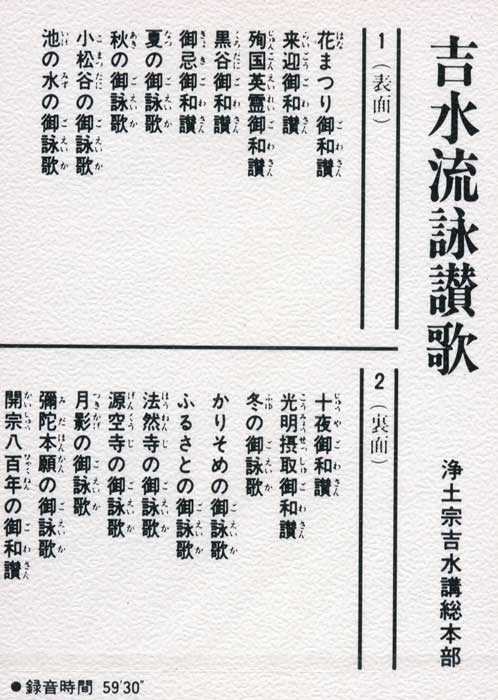 吉水流詠讃歌
浄土宗吉水講総本部
1（表面）
花まつり御和讃
来迎御和讃
殉国英霊御和讃
黒谷御和讃
御忌御和讃
夏の御詠歌
秋の御詠歌
小松谷の御詠歌
池の水の御詠歌
2（裏面）
十夜御和讃
光明摂取御和讃
冬の御詠歌
かりそめの御詠歌
ふるさとの御詠歌
法然寺の御詠歌
源空寺の御詠歌
月影の御詠歌
彌陀本願の御詠歌
開宗八百年の御和讃
●録音時間 59′30″